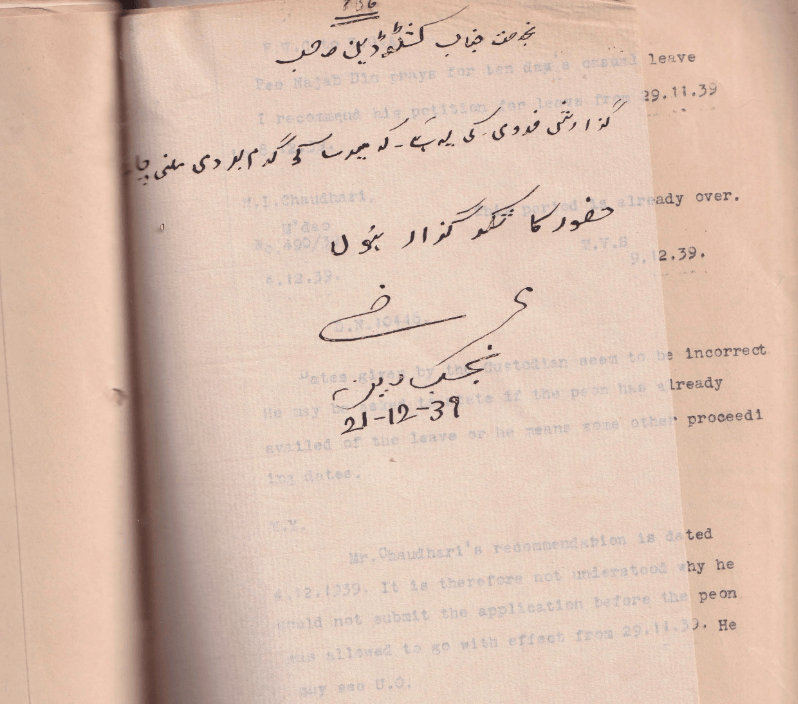 بخدمت جناب کسٹوڈین صاحب
گذارش فدوی کی یہ ہے۔ کہ گرم وردی ملنی
حضور کا شکر گذار ہوں
نجب دین
21-12-39
Peo Najab Din prays for ten day's casual leave
I recommend his petition for leave from 29.11.39
M.L.Chaudhari,
This period is already over.
M.V.S
9.12.39.
4.12.39.
D.N.10440.
Dates given by the Custodian seem to be incorrect
He may be asked to state if the peon has already
availed of the leave or he means some other proceedi
ing dates.
Mr.Chaudhari's recommendation is dated
4.12.1939. It is therefore not understood why he
could not submit the application before the peon
was allowed to go with effect from 29.11.39. He
may see U.O.